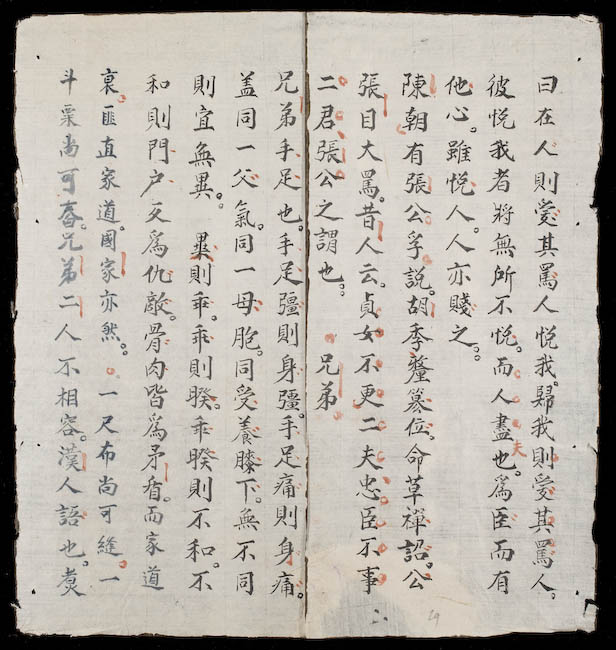 曰在人則愛其罵人悅我。歸我則愛其罵人。
彼悅我者將無所不悅。而人盡夫也。爲臣而有
他心。雖悅人。人亦賤之。
陳朝有張公孚說。胡季犛篡位。命草禪詔。公
張目大罵。昔人云。貞女不更二夫忠臣不事
二君張公之謂也。 兄弟
兄弟手足也。手足彊則身彊。手足痛則身痛。
盖同一父氣。同一母胞。同受養膝下。無不同
則宜無異。異則乖。乖則睽。乖睽則不和。不
和則門户交爲仇敵。骨肉皆爲矛盾。而家道
衰匪直家道。國家亦然。 一尺布尚可縫。一
斗粟尚可舂。兄弟二人不相容。漢人語也。煑